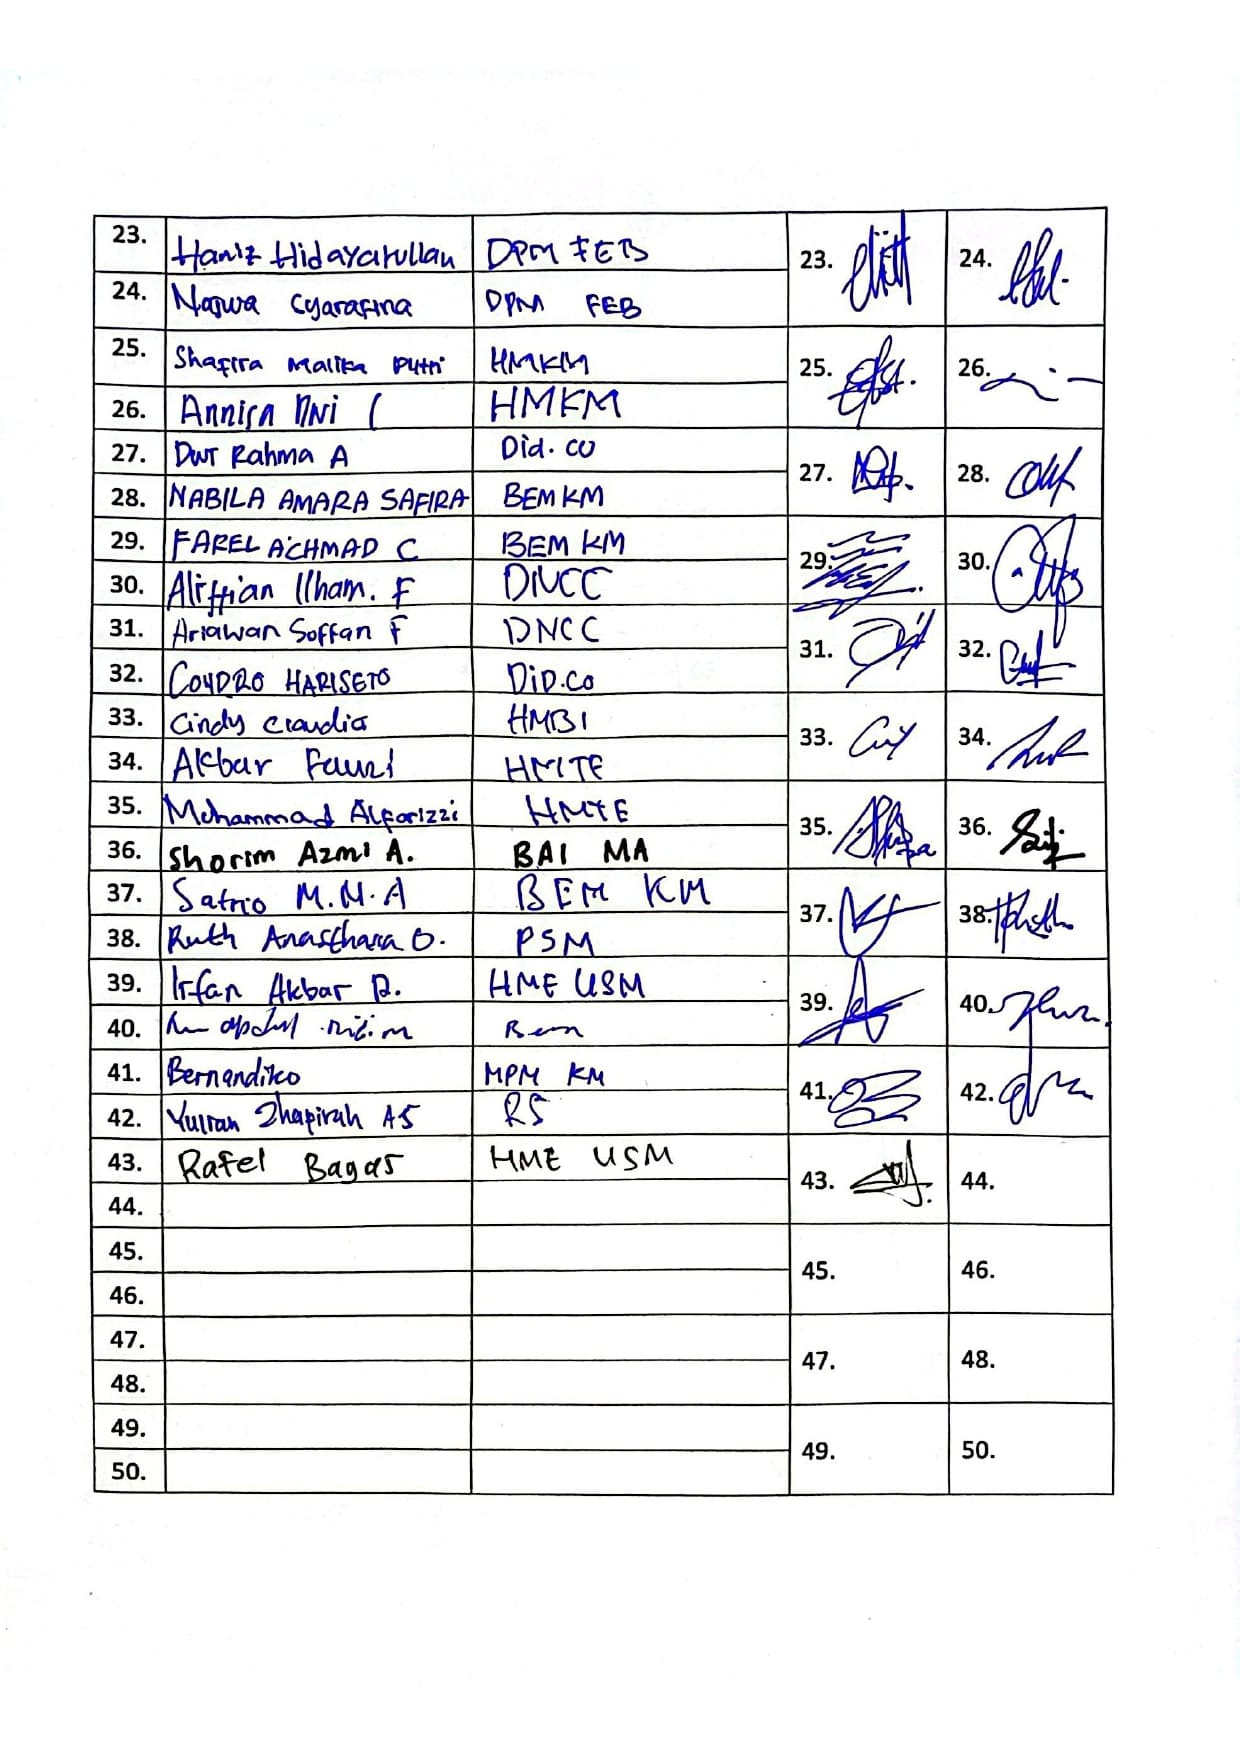 23. Haniz Hidayatullah DPM FEB 23. 24.
24. Najwa Cyarafina DPM FEB
25. Shafira Malika Putri HMKM 25. 26.
26. Annisa DWi C HMKM
27. Dwi Rahma A Did. co 27. 28.
28. NABILA AMARA SAFIRA BEM KM
29. FAREL ACHMAD C BEM KM 29. 30.
30. Aliffian Ilham. F DNCC
31. Ariawan Soffan F DNCC 31. 32.
32. CONDRO HARISETO DiD.Co
33. Cindy Claudia HMBI 33. 34.
34. Akbar Fauzi HMTE
35. Mohammad Alfarizzi HMTE 35. 36.
36. Shorim Azmi A. BAI MA
37. Satrio M.N.A BEM KM 37. 38.
38. Ruth Anasthara O. PSM
39. Irfan Akbar R. HME USM 39. 40.
40. Bem
41. Bernandiko MPM KM 41. 42.
42. Dhapirah AS RS
43. Rafel Bagas HME USM 43. 44.
44.
45. 45. 46.
46.
47. 47. 48.
48.
49. 49. 50.
50.